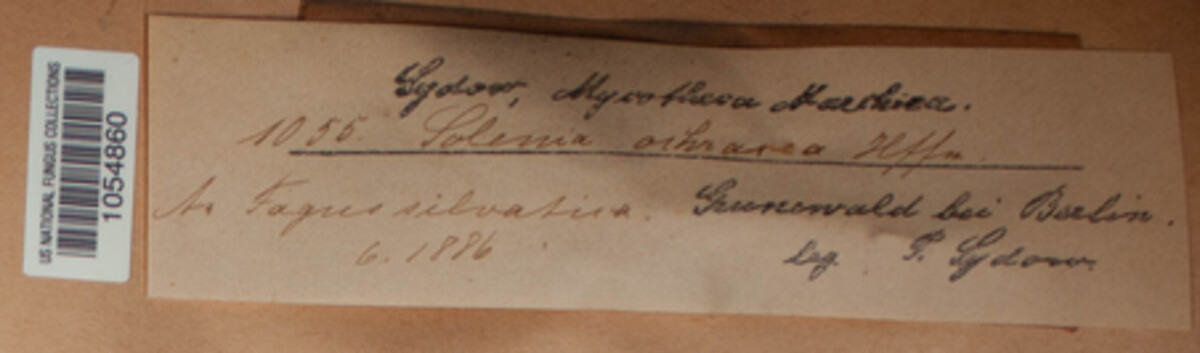 US NATIONAL FUNGUS COLLECTIONS
1054860
Sydow, Mycotheca Marchica.
1055. Solenia ochracea Hffm.
An Fagus silvatica. Grunewald bei Berlin.
6. 1886 leg. P. Sydow.